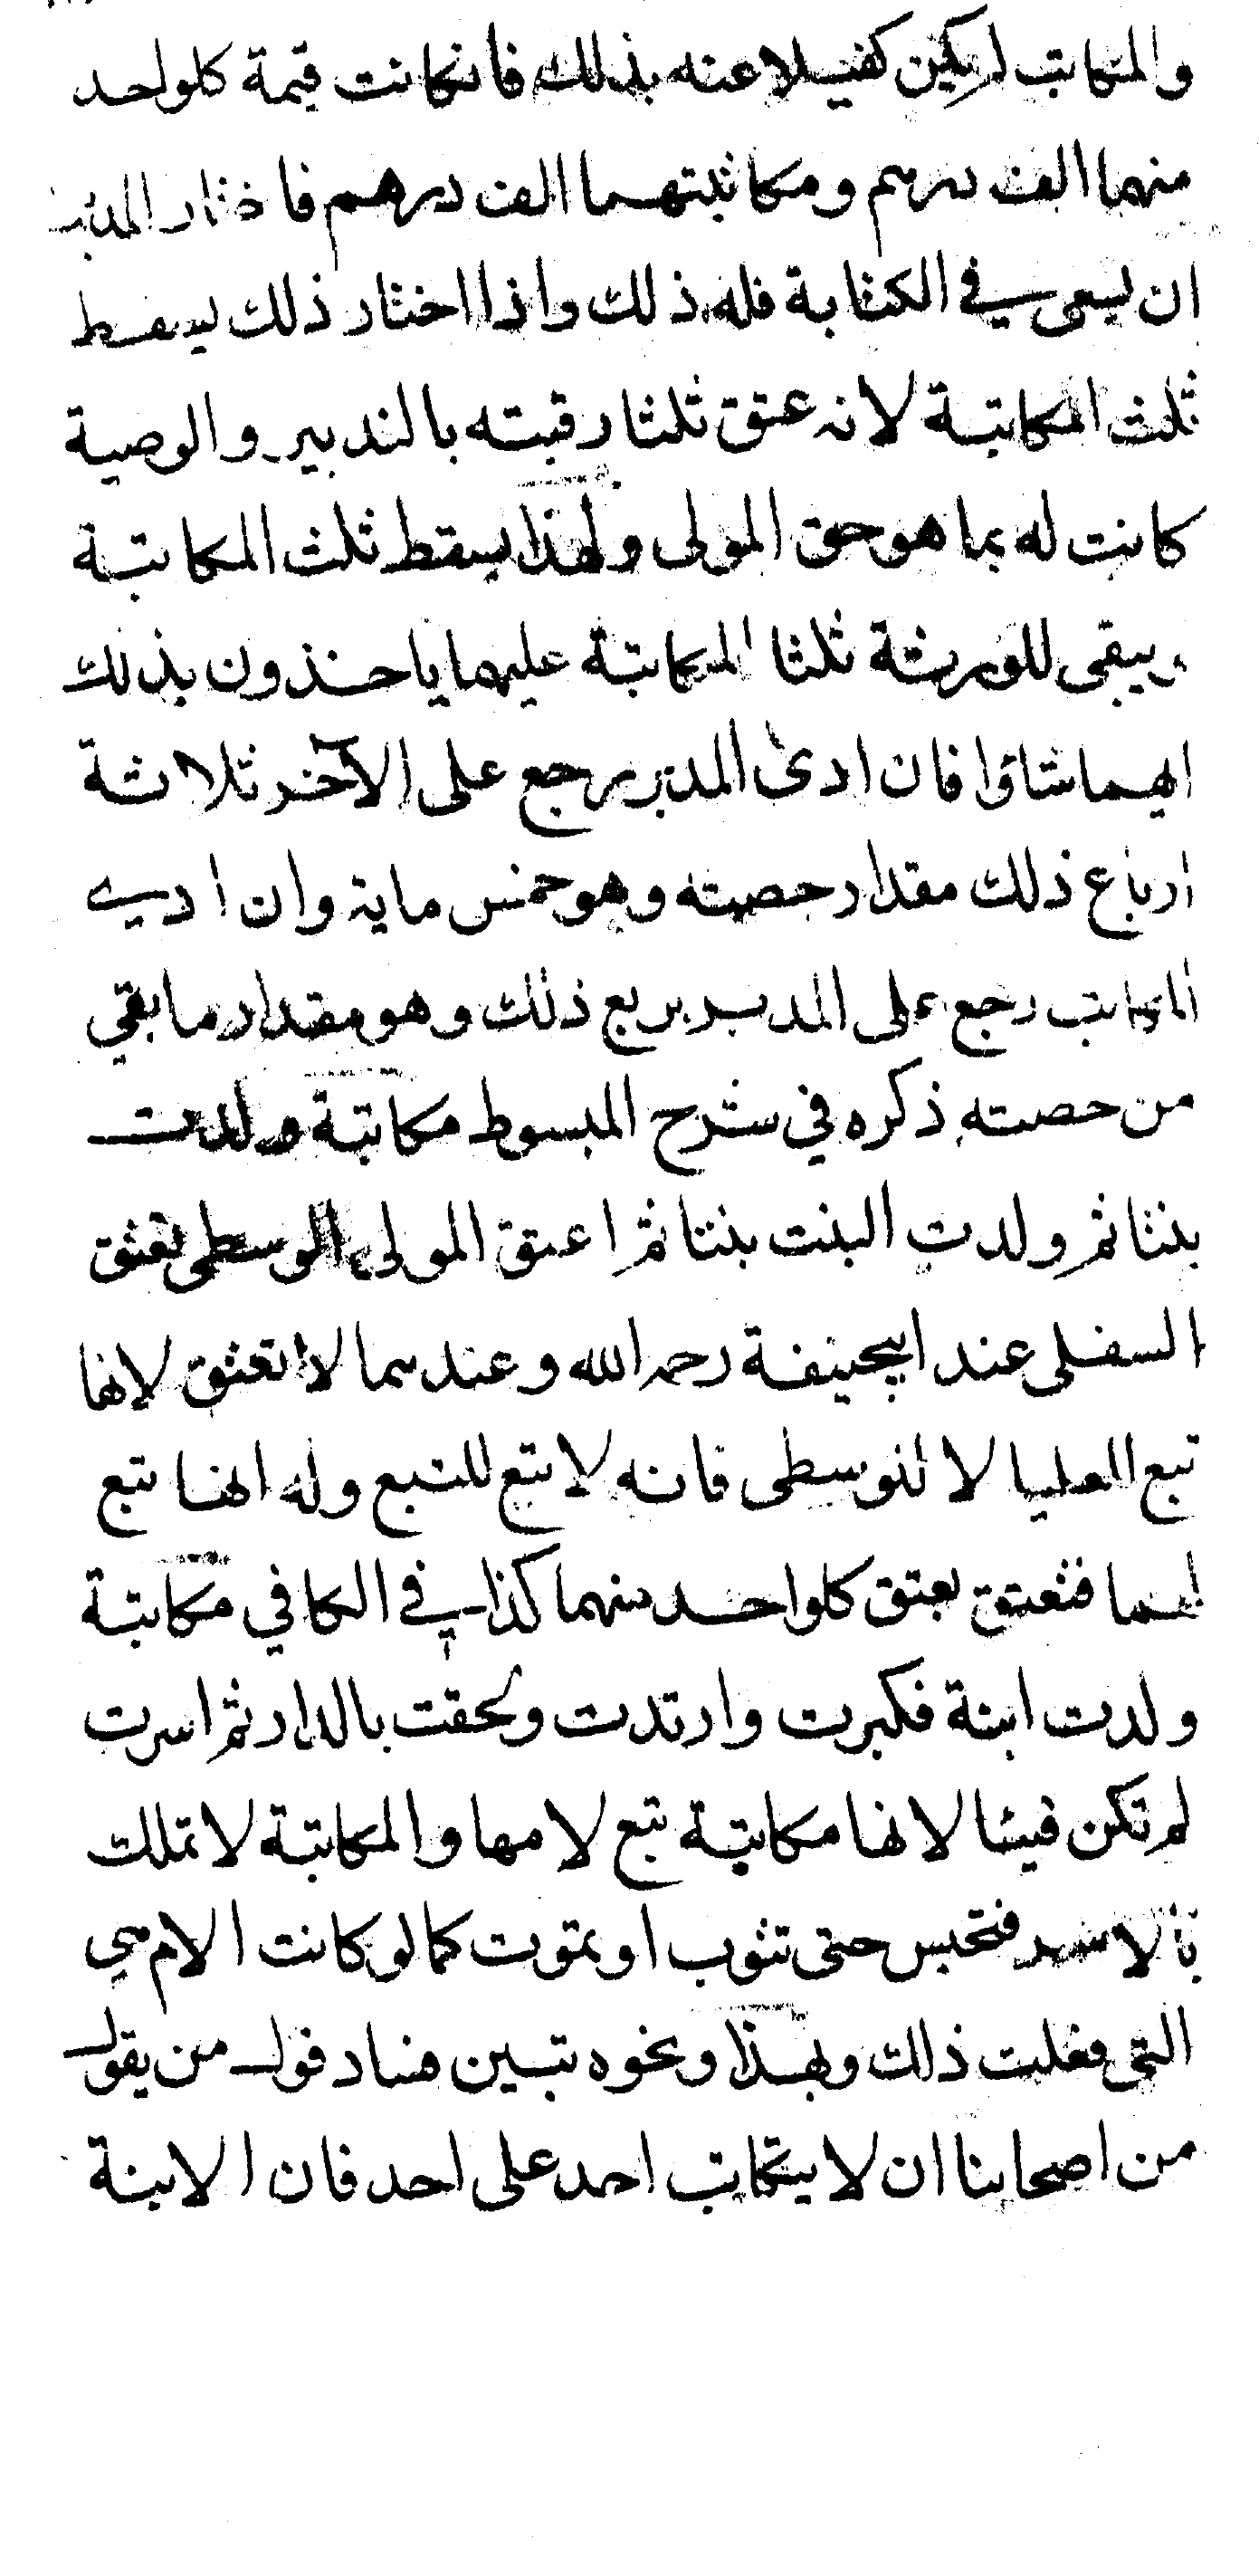 والمكاتب لم يكن كفيلا عنه بذلك فانكانت قيمة كلواحد
منهما الف درهم ومكاتبتهما الف درهم فاختار المدبر
ان يسعى في الكتابة فله ذلك واذا اختار ذلك يسقط
ثلث المكاتبة لانه عتق ثلثا رقبته بالتدبير والوصية
كانت له بما هو حق المولى ولهذا يسقط ثلث المكاتبة
ويبقى للورثة ثلثا المكاتبة عليهما ياخذون بذلك
ايهما شاؤا فان ادى المدبر رجع على الآخر ثلاثة
ارباع ذلك مقدار حصته وهو خمس ماية وان ادى
المكاتب رجع على المدبر بربع ذلك وهو مقدار ما بقي
من حصته ذكره في شرح المبسوط مكاتبة ولدت
بنتا ثم ولدت البنت بنتا ثم اعتق المولى الوسطى تعتق
السفلى عند ابيحنيفة رحمه الله وعندهما لا تعتق لانها
تبع العليا لا للوسطى فانه لا تبع للتبع وله انها تبع
لهما فتعتق بعتق كلواحد منهما كذا في الكافي مكاتبة
ولدت ابنة فكبرت وارتدت ولحقت بالدار ثم اسرت
لم تكن فيئا لانها مكاتبة تبع لامها والمكاتبة لا تملك
بالاسر فتحبس حتى تتوب او تموت كما لو كانت الام هي
التى فعلت ذلك وبهذا ونحوه تبين فساد قول من يقول
من اصحابنا ان لا يتكاتب احد على احد فان الابنة